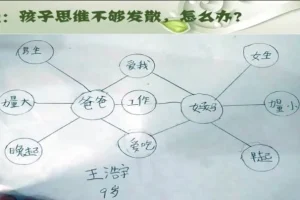 ：孩子思维不够发散，怎么办？
男生 爱我 女生
力量大 爸爸 工作 力量小
晚起 爱吃 早起
王浩宇
9岁